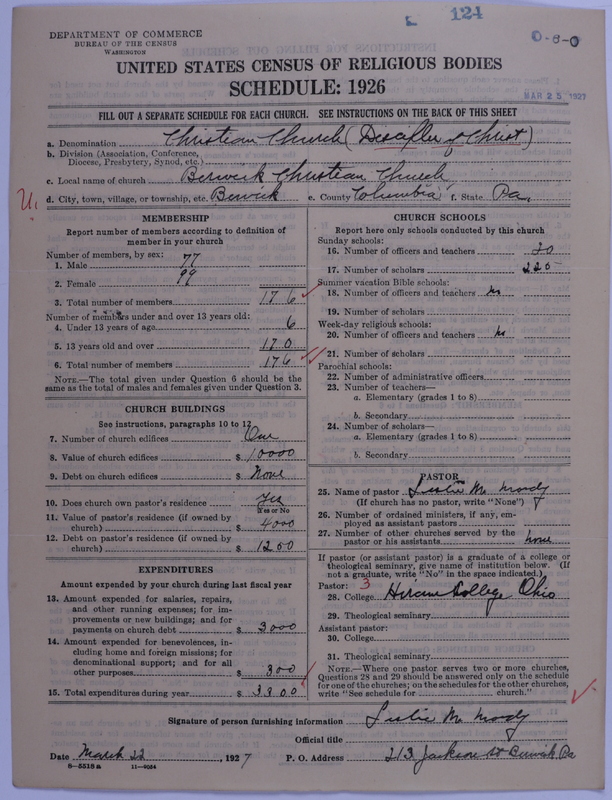 124
0-8-0
DEPARTMENT OF COMMERCE
BUREAU OF THE CENSUS
WASHINGTON
UNITED STATES CENSUS OF RELIGIOUS BODIES
SCHEDULE: 1926
MAR 25 1927
FILL OUT A SEPARATE SCHEDULE FOR EACH CHURCH. SEE INSTRUCTIONS ON THE BACK OF THIS SHEET
a. Denomination Christian Church (Disciples of Christ)
b. Division (Association, Conference, Diocese, Presbytery, Synod, etc.)
c. Local name of church Berwick Christian Church
U.
d. City, town, village, or township, etc. Berwick e. County Columbia f. State Pa.
MEMBERSHIP
Report number of members according to definition of
member in your church
Number of members, by sex:
1. Male 77
2. Female 99
3. Total number of members 176
Number of members under and over 13 years old:
4. Under 13 years of age 6
5. 13 years old and over 170
6. Total number of members 176
NOTE.—The total given under Question 6 should be
same as the total of males and females given under Question 3.
CHURCH BUILDINGS
See instructions, paragraphs 10 to 12
7. Number of church edifices One
8. Value of church edifices $ 10000
9. Debt on church edifices $ None
10. Does church own pastor's residence Yes
Yes or No
11. Value of pastor's residence (if owned by
church) $ 4000
12. Debt on pastor's residence (if owned by
church) $ 1200
EXPENDITURES
Amount expended by your church during last fiscal year
13. Amount expended for salaries, repairs,
and other running expenses; for im-
provements or new buildings; and for
payments on church debt $ 3000
14. Amount expended for benevolences, in-
cluding home and foreign missions; for
denominational support; and for all
other purposes $ 300
15. Total expenditures during year $ 3300
CHURCH SCHOOLS
Report here only schools conducted by this church
Sunday schools:
16. Number of officers and teachers 20
17. Number of scholars 225
Summer vacation Bible schools:
18. Number of officers and teachers no
19. Number of scholars
Week-day religious schools:
20. Number of officers and teachers no
21. Number of scholars
Parochial schools:
22. Number of administrative officers
23. Number of teachers—
a. Elementary (grades 1 to 8)
b. Secondary
24. Number of scholars—
a. Elementary (grades 1 to 8)
b. Secondary
PASTOR
25. Name of pastor Leslie M. Moody
(If church has no pastor, write "None")
26. Number of ordained ministers, if any, em-
ployed as assistant pastors
27. Number of other churches served by the
pastor or his assistants none
If pastor (or assistant pastor) is a graduate of a college or
theological seminary, give name of institution below. (If
not a graduate, write "No" in the space indicated.)
Pastor: 3
28. College Hiram College Ohio
29. Theological seminary
Assistant pastor:
30. College
31. Theological seminary
NOTE.—Where one pastor serves two or more churches,
Questions 28 and 29 should be answered only on the schedule
for one of the churches; on the schedules for the other churches,
write "See schedule for church."
Signature of person furnishing information Leslie M. Moody
Official title
Date March 22, 1927 P. O. Address 213 Jackson St Berwick Pa
8-5518 a 11-9054